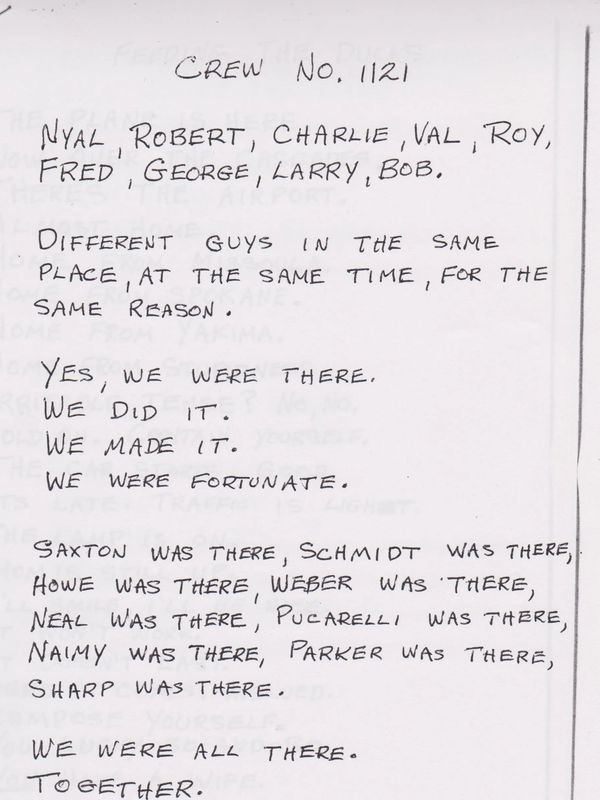 CREW NO. 1121
NYAL, ROBERT, CHARLIE, VAL, ROY,
FRED, GEORGE, LARRY, BOB.
DIFFERENT GUYS IN THE SAME
PLACE, AT THE SAME TIME, FOR THE
SAME REASON.
YES, WE WERE THERE.
WE DID IT.
WE MADE IT.
WE WERE FORTUNATE.
SAXTON WAS THERE, SCHMIDT WAS THERE,
HOWE WAS THERE, WEBER WAS THERE,
NEAL WAS THERE, PUCARELLI WAS THERE,
NAIMY WAS THERE, PARKER WAS THERE,
SHARP WAS THERE.
WE WERE ALL THERE.
TOGETHER.